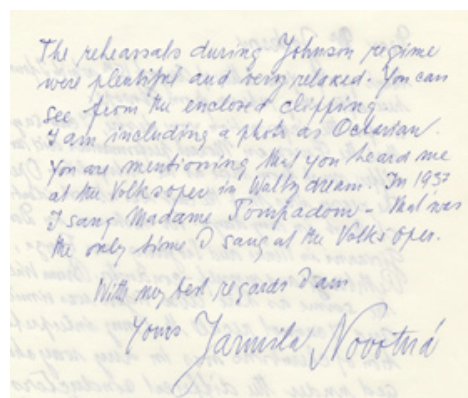 The rehearsals during Johnson regime
were plentiful and very relaxed. You can
see from the enclosed clipping
I am including a photo as Octavian.
You are mentioning that you heard me
at the Volksoper in Waltzdream. In 1937
I sang Madame Pompadour - that was
the only time I sang at the Volksoper.
With my best regards I am
Yours Jarmila Novotná